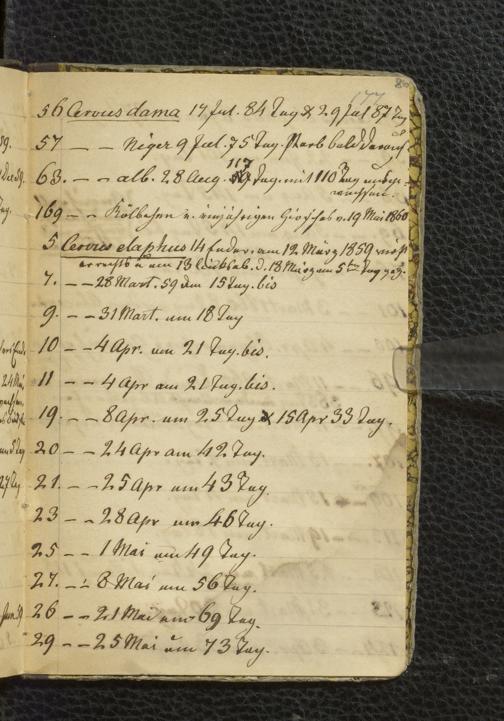 177
56 Cervus dama 17 Jul. 84 Tag & 29 Jul 87 Tg
57 – – Niger 9 Jul. 75 Tag. starb bald darauf
117
63. – – alb. 28 Aug. Tag. mit 110 Tag
169 – – Kölbchen v. einjährigen Hirsches v. 19 Mai 1860
5 Cervus elaphus 14 Ender. am 12 März 1859
rechts u am 13 links ab. d. 18 März am 5ten Tag gez.
7. – – 28 Mart. 59 den 15 Tag. bis
9. – – 31 Mart. am 18 Tag
10 – – 4 Apr. am 21 Tag. bis.
11 – – 4 Apr am 21 Tag. bis.
19. – – 8 Apr. am 25 Tag & 15 Apr 33 Tag.
20 – – 24 Apr am 42 Tag.
21. – – 25 Apr am 43 Tag
23 – – 28 Apr am 46 Tag.
25 – – 1 Mai am 49 Tag.
27. – – 8 Mai am 56 Tag.
26 – – 21 Mai am 69 Tag.
29 – – 25 Mai am 73 Tag.